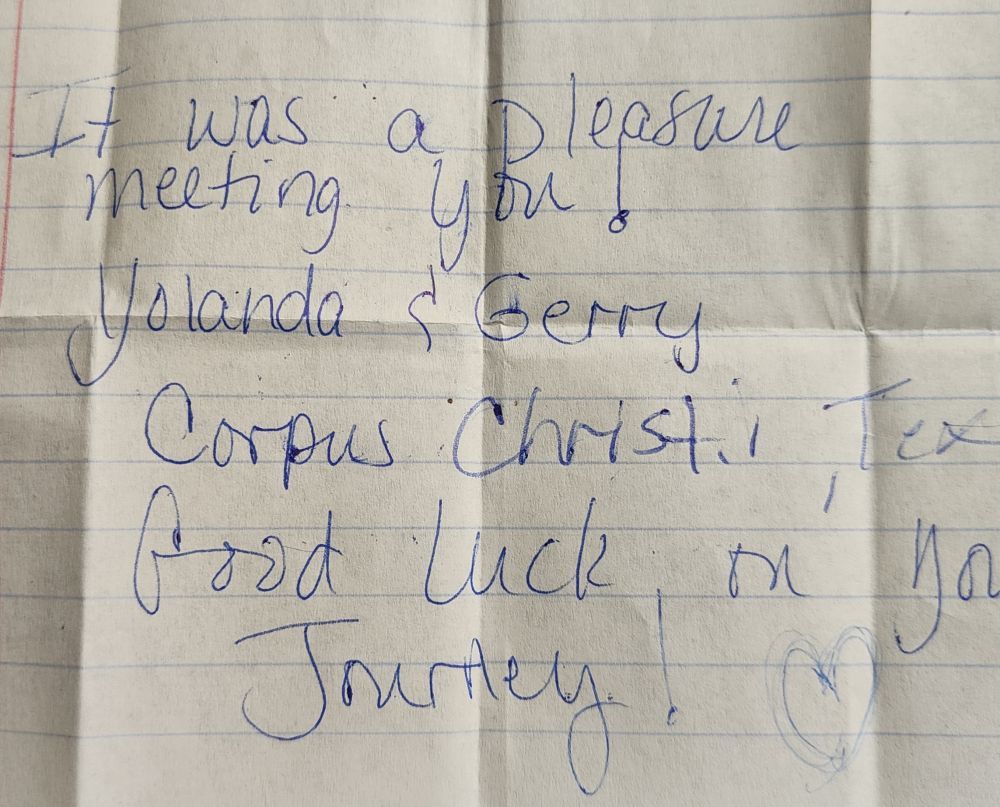 It was a pleasure
meeting you!
Yolanda & Gerry
Corpus Christi, Tex
Good Luck on you
Journey!